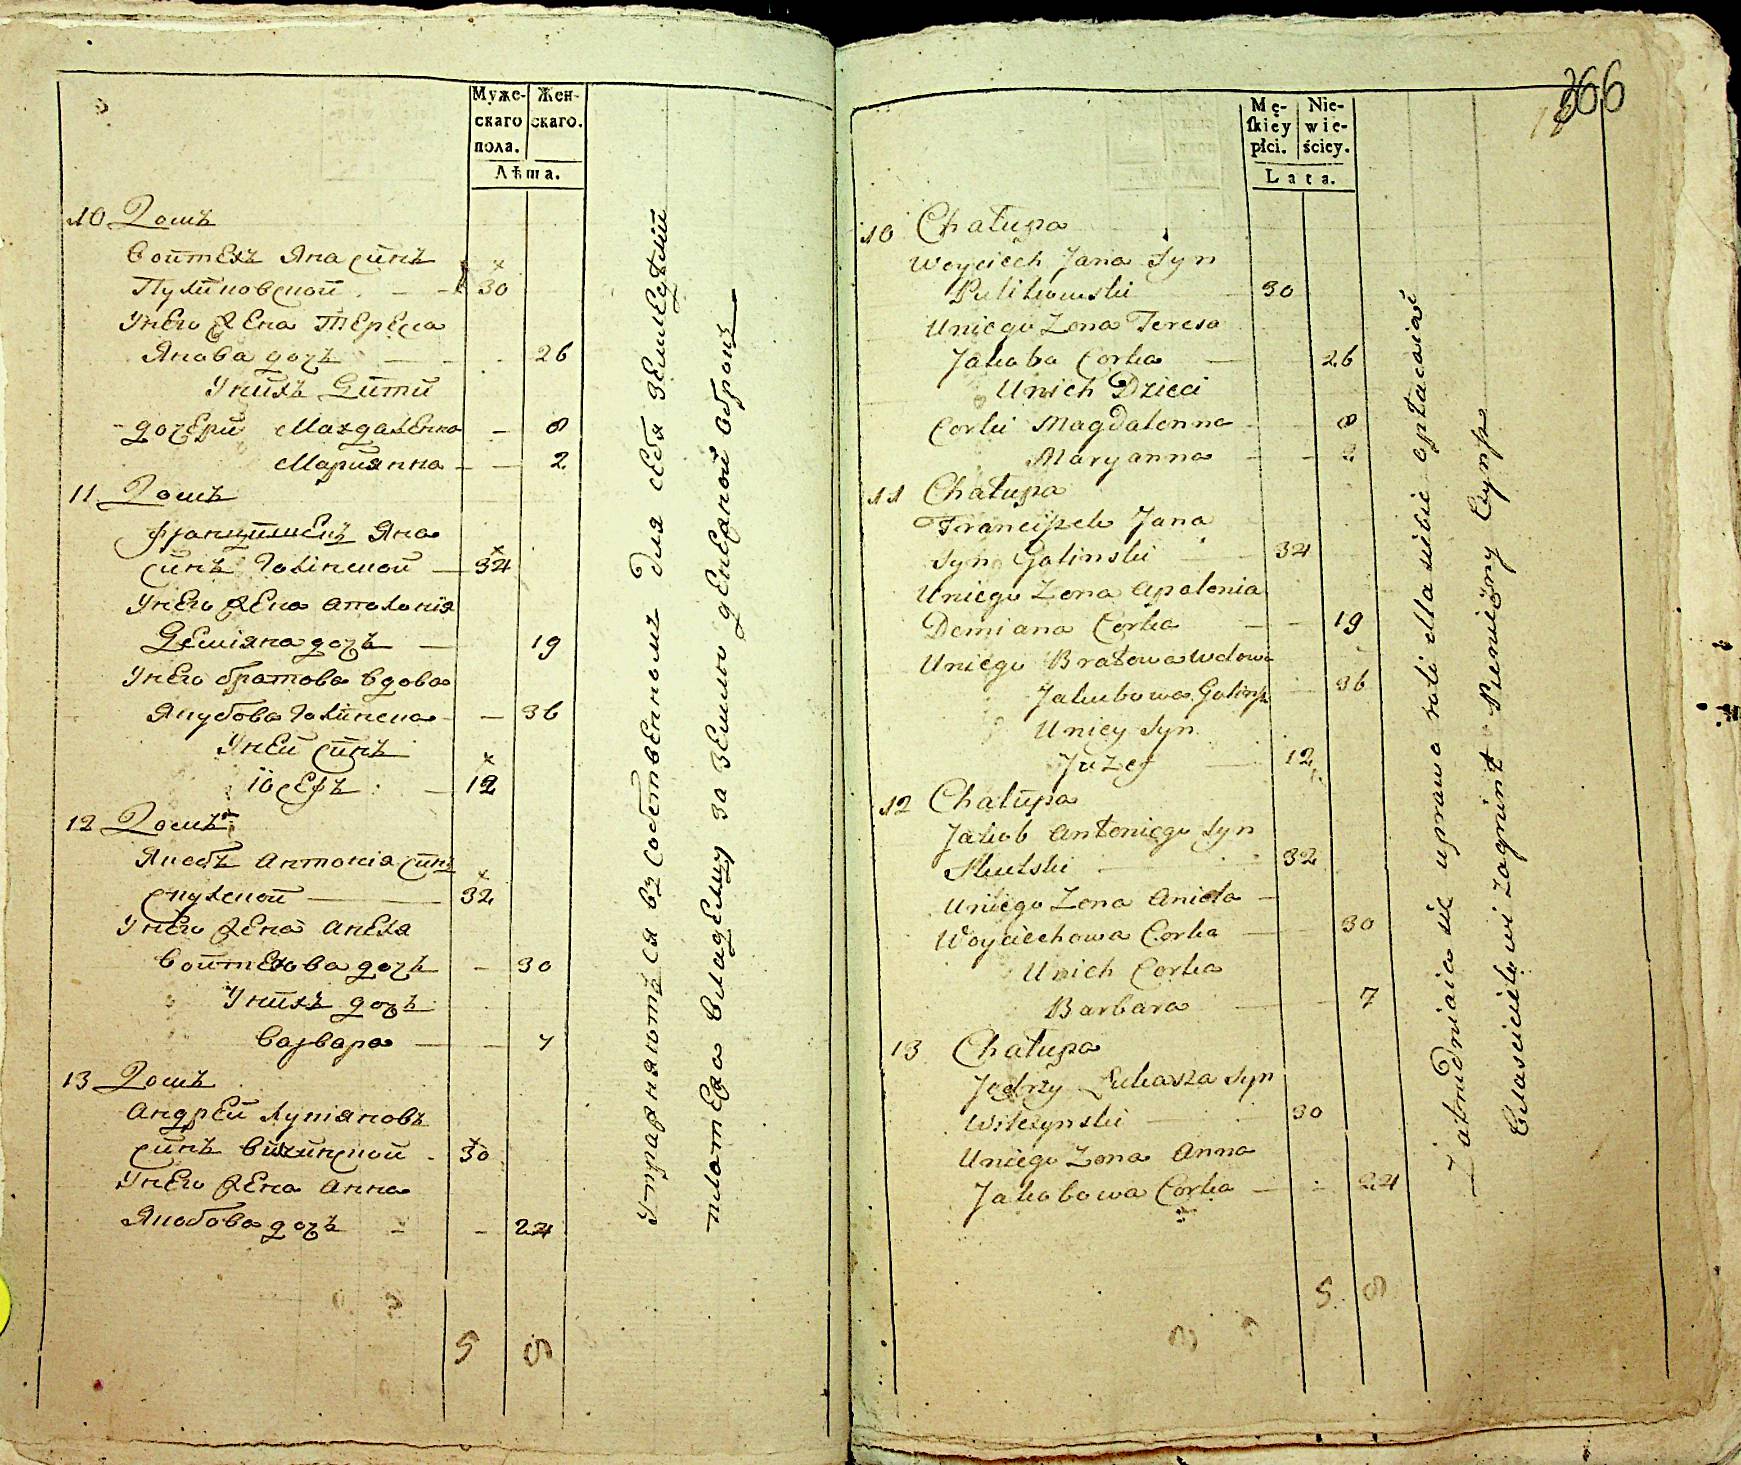 Муже-
скаго
пола.
Жен-
скаго.
Лѣта.
10 Домъ
Войтехъ Яна синъ
Пуликовской 30
Унего жена Тереса
Якова дочъ 26
Унихъ Дити
дочери Магдаленна 8
Марианна 2
11 Домъ
Францишекъ Яна
синъ Голинской 34
Унего жена Аполонiя
Демiяна дочъ 19
Унего братова вдова
Якубова Голинска 36
Уней синъ
Iосефъ 12
12 Домъ
Якобъ Антонiя синъ
скулской 32
Унего жена Анеля
Войтехова дочъ 30
Унихъ дочъ
Варвара 7
13 Домъ
Андрей Лукiяновъ
синъ Вилчинской 30
Унего жена Анна
Якобова дочъ 24
5 8
Упражняютъся въ собственномъ для себя земледѣлiи
платежа владелцу за землю денежной оброкъ
366
Mę-
skiey
płci.
Nie-
wie-
ściey.
Lata.
10 Chałupa
Woyciech Jana Syn
Pulikowski 30
Uniego Zona Teresa
Jakoba Corka 26
Unich Dzieci
Corki Magdalenna 8
Maryanna 2
11 Chałupa
Franciszek Jana
Syn Golinski 34
Uniego Zona Apolonia
Demiana Corka 19
Uniego Bratowa wdowa
Jakubowa Golinsk 36
Uniey Syn
Juzef 12
12 Chałupa
Jakob Antoniego Syn
Skulski 32
Uniego Zona Aniela
Woyciechowa Corka 30
Unich Corka
Barbara 7
13 Chałupa
Jędrzy Łukasza Syn
Wilczynski 30
Uniego Zona Anna
Jakobowa Corka 24
5 8
Zatrudniaia sie uprawa roli dla siebie opłacaiać
Własicielowi zagrunt Pieniężny Czynsz